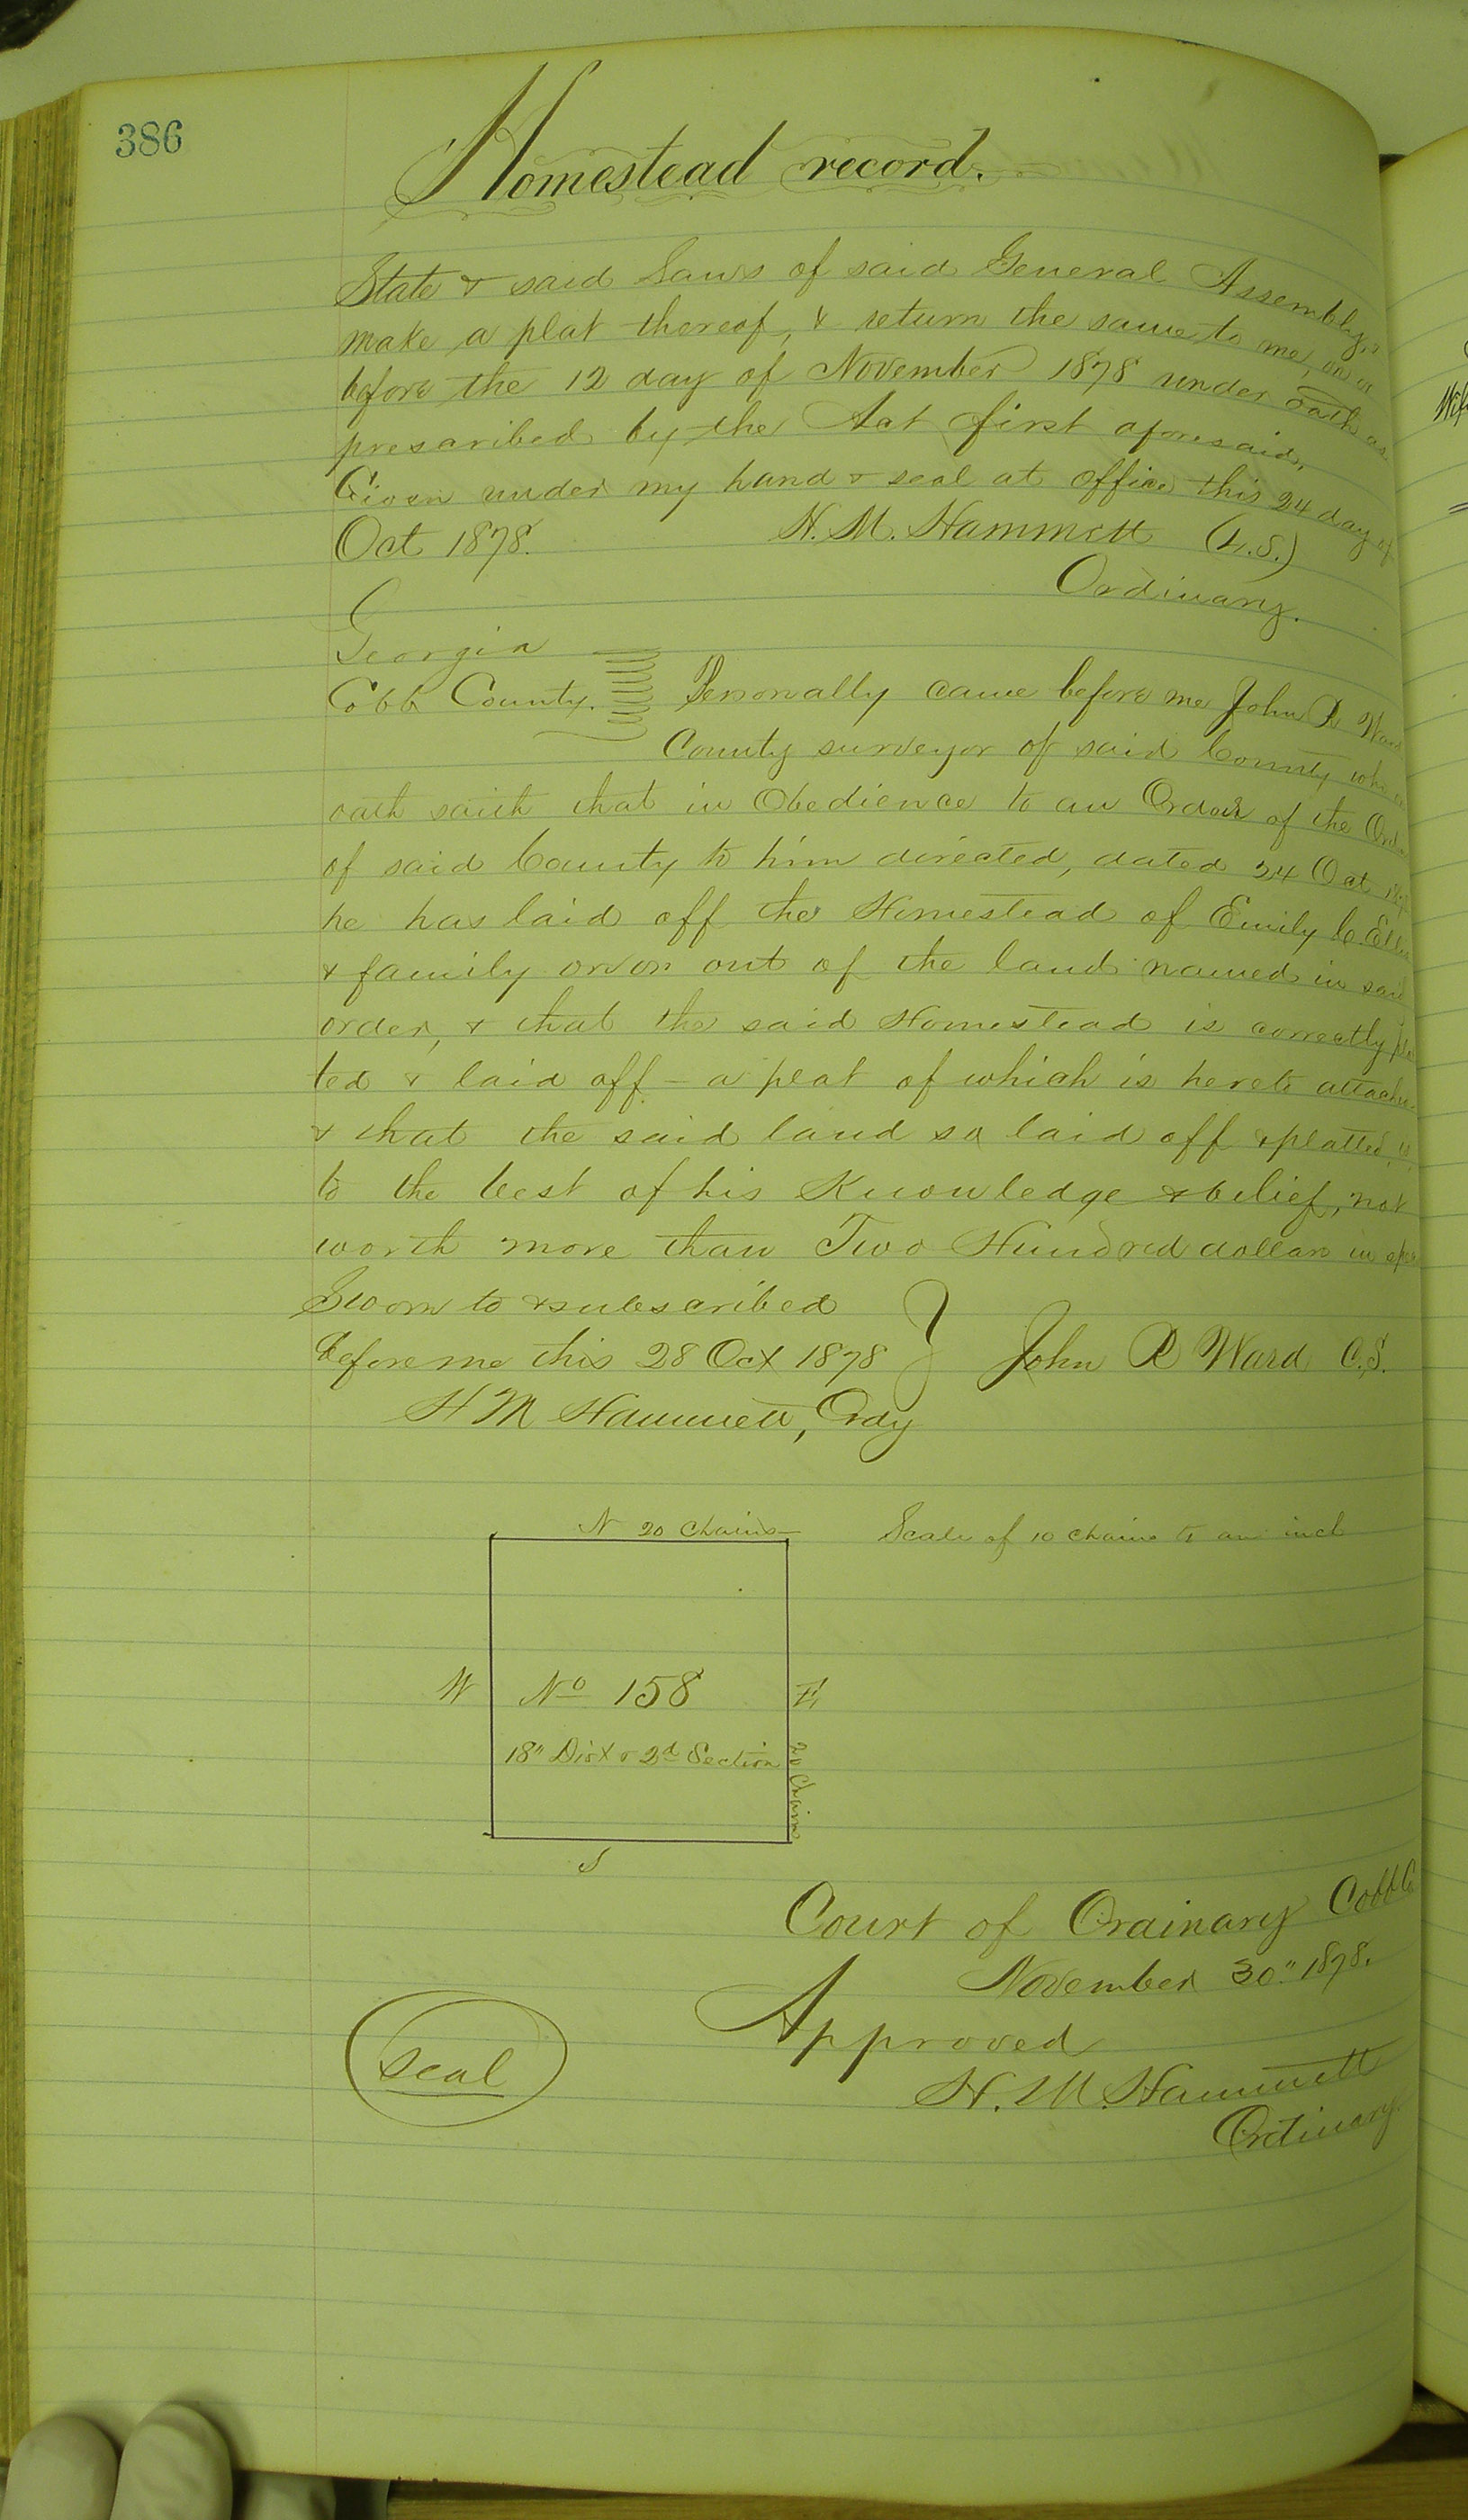 386
Homestead record.
State & said Laws of said General Assembly,
make a plat thereof, & return the same to me, on or
before the 12 day of November 1878 under oath as
prescribed by the Act first aforesaid,
Given under my hand & seal at office this 24 day of
Oct 1878. H. M. Hammett (L.S.)
Ordinary.
Georgia
Cobb County. Personally came before me John R Ward
County surveyor of said County who
oath saith that in Obedience to an Order of the
of said County to him directed, dated 24 Oct
he has laid off the Homestead of Emily C.
& family out of the land named in said
order, & that the said Homestead is correctly plat
ted & laid off - a plat of which is hereto
& that the said land so laid off & platted, is,
to the best of his Knowledge & belief, not
worth more than Two Hundred dollars in
Sworn to & subscribed
before me this 28 Oct 1878 John R Ward C.S.
H M Hammett, Ordy
N 20 Chains Scale of 10 chains to an inch
W No 158 E
18" Dist & 2d Section
20 Chains
S
Court of Ordinary Cobb Co
November 30" 1878.
Approved
seal
H. M. Hammett
Ordinary